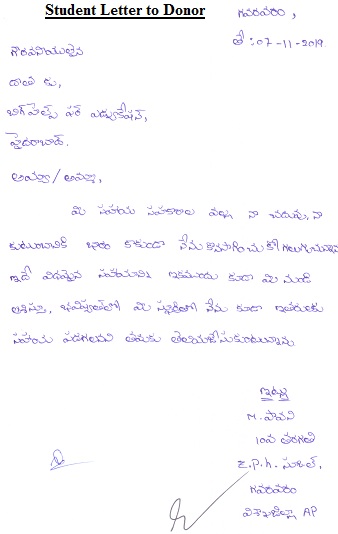 Student Letter to Donor
గవరవరం,
తే: 07-11-2019.
గౌరవనీయులైన
దాత లు,
బిగ్ హెల్ప్ ఫర్ ఎడ్యుకేషన్,
హైదరాబాద్.
అయ్యా/అమ్మా,
మీ సహాయ సహకారాల వల్ల నా చదువు, నా
కుటుంబానికి భారం కాకుండా నేను కొనసాగించు కోగలుగుతున్నాను
ఇదే విధమైన సహాయాన్ని ఇకముందు కూడా మీ నుండి
ఆశిస్తూ, భవిష్యత్‌లో మీ స్ఫూర్తితో నేను కూడా ఇతరులకు
సహాయ పడగలనని తమకు తెలియజేసుకుంటున్నాను
ఇట్లు
M. పావని
10వ తరగతి
Z.P.h. స్కూల్,
గవరవరం
విశాఖజిల్లా AP